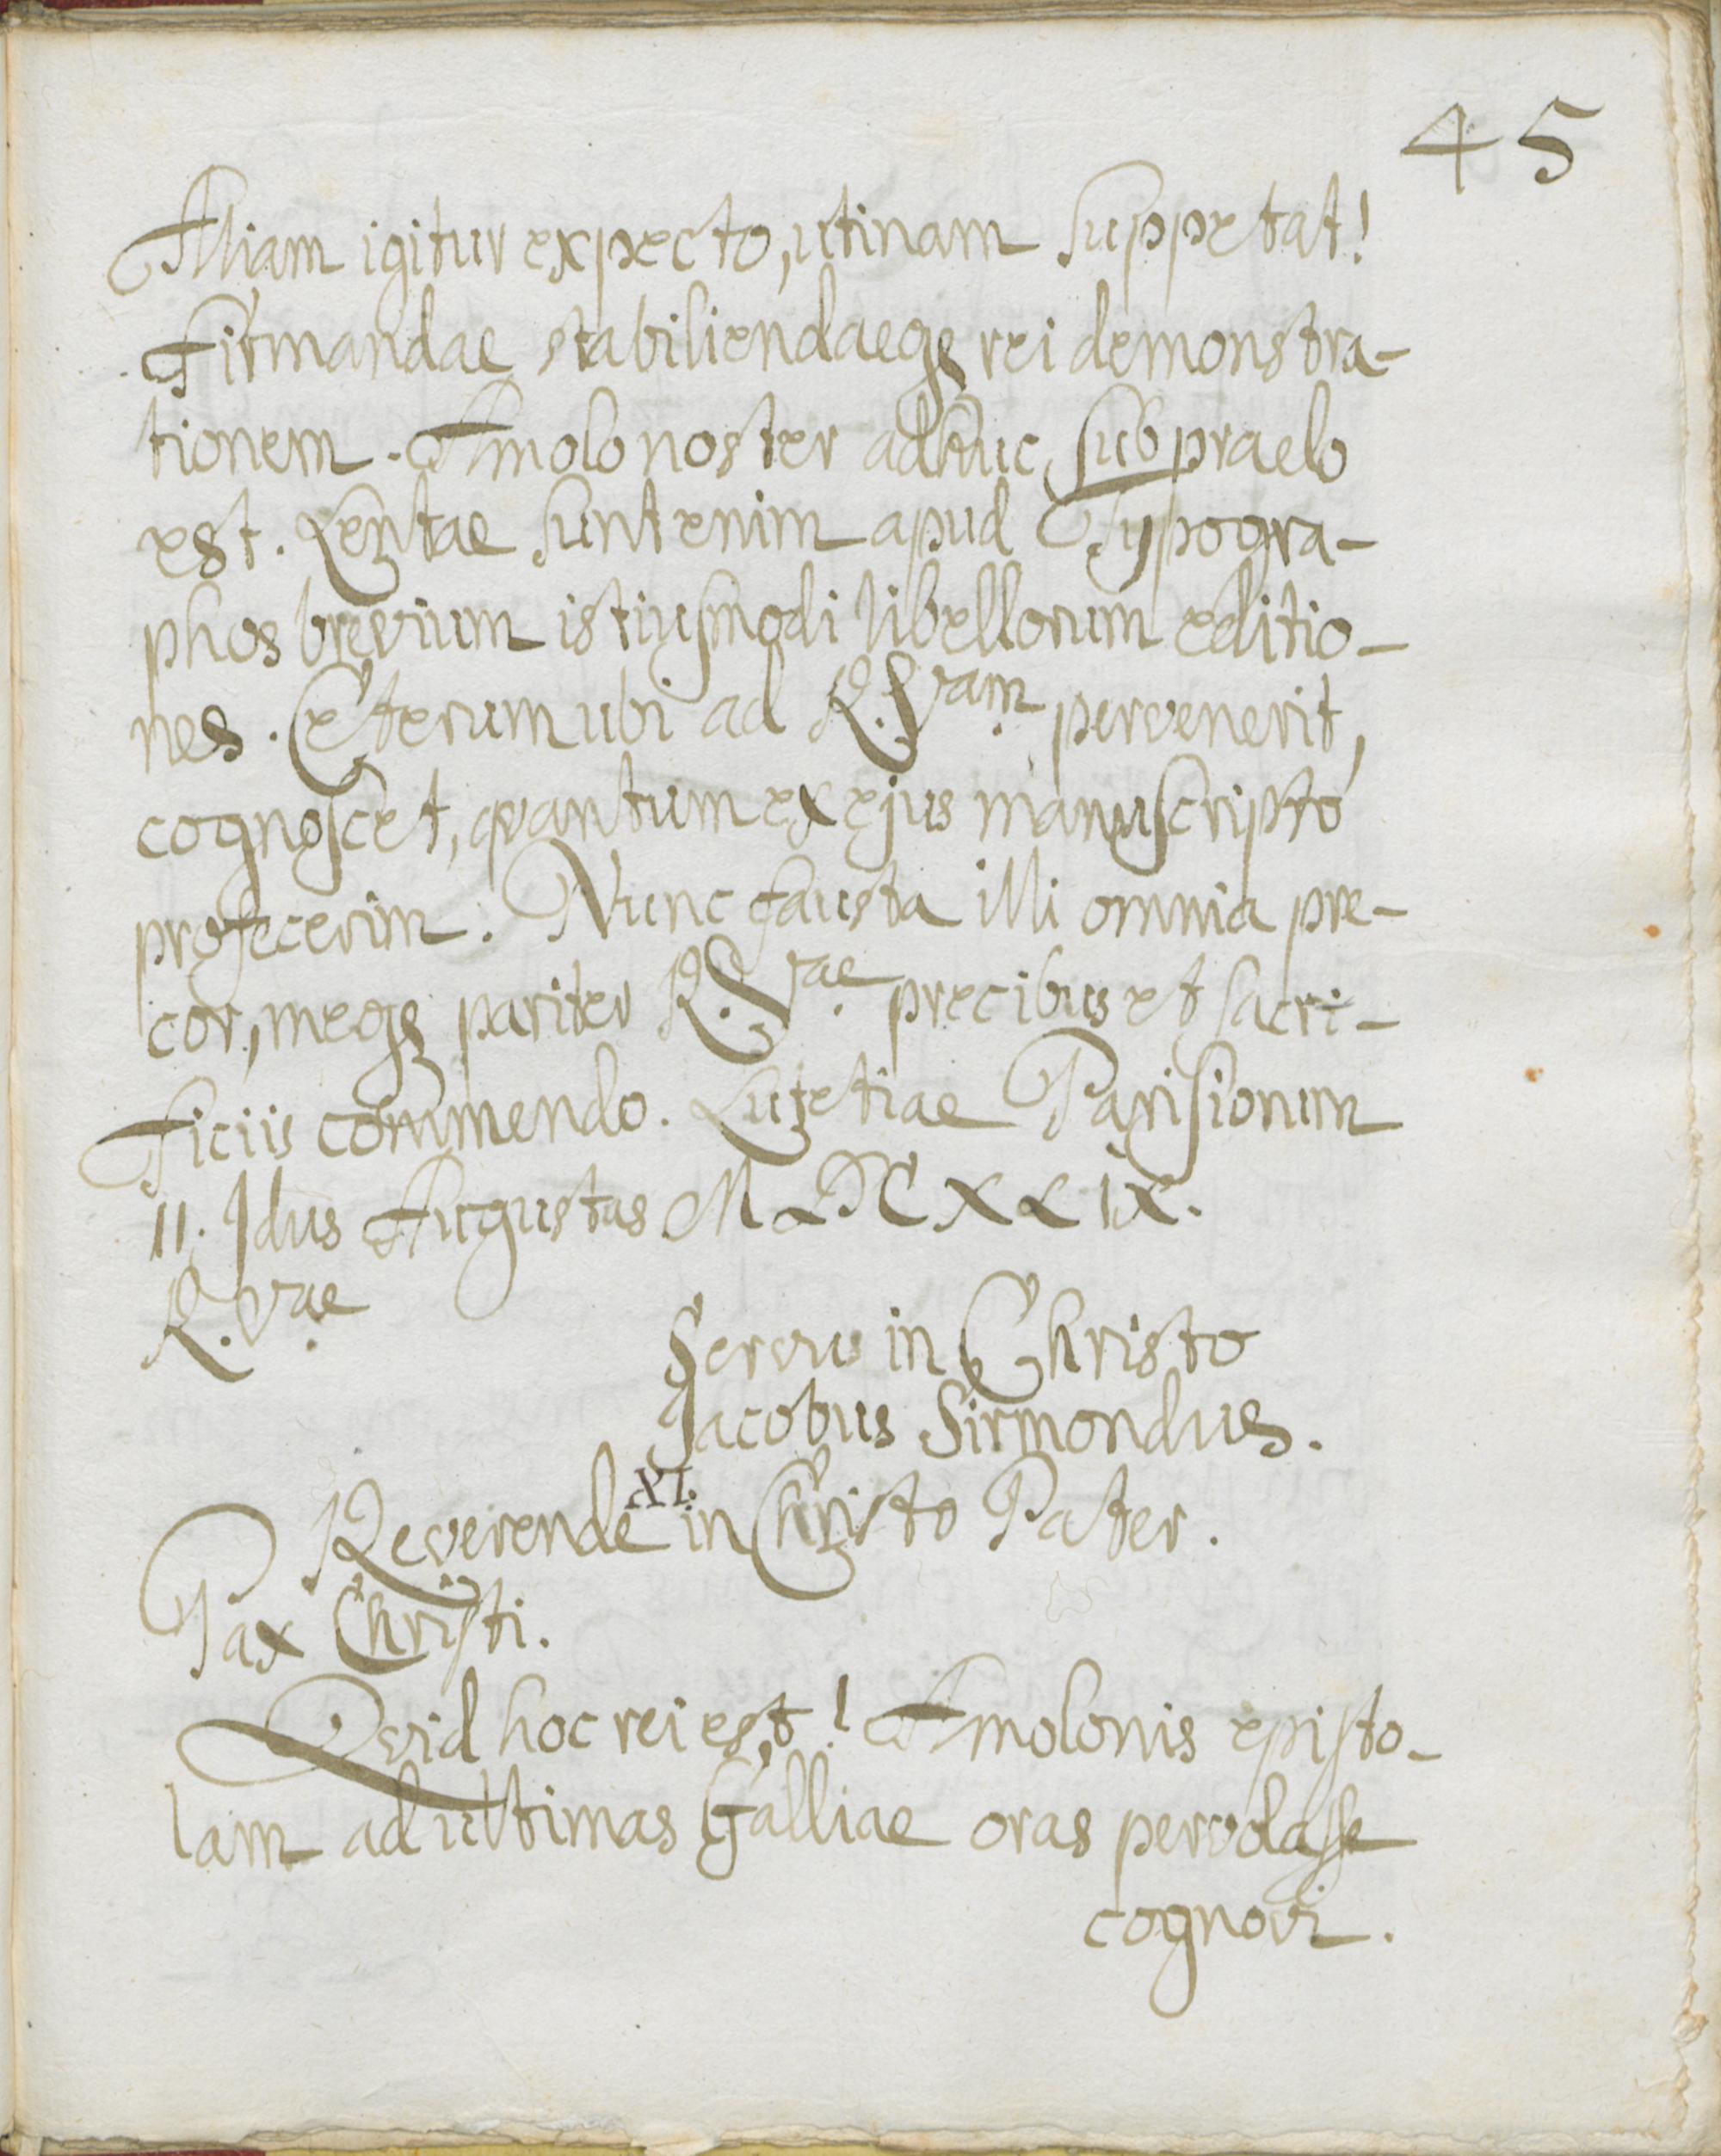 45
Aliam igitur expecto, utinam suppetat!
Firmandae stabiliendaeqz rei demonstra-
tionem. Amolo noster adhuc sub praelo
est. Lentae sunt enim apud Typogra-
phos brevium istiusmodi libellorum editio-
nes. Ceterum ubi ad R. Vram pervenerit,
cognoscet, quantum ex ejus manuscripto
profecerim. Nunc fausta illi omnia pre-
cor, meqz pariter R. Vrae precibus et sacri-
ficiis commendo. Lutetiae Parisiorum
II. Idus Augustas MDCXLIX.
R. Vrae
Servus in Christo
Jacobus Sirmondus.
XI.
Reverende in Christo Pater.
Pax Christi.
Quid hoc rei est! Amolonis episto-
lam ad ultimas Galliae oras pervolasse
cognovi.